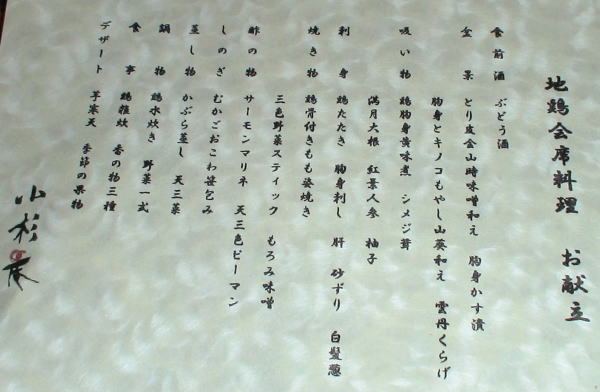 地鶏会席料理 お献立
食前酒 ぶどう酒
盆景 とり皮金山時味噌和え 胸身かす漬
胸身とキノコもやし山葵和え 雲丹くらげ
吸い物 鶏胸身黄味煮 シメジ茸
満月大根 紅葉人参 柚子
刺身 鶏たたき 胸身刺し 肝 砂ずり 白髪葱
焼き物 鶏骨付きもも姿焼き
三色野菜スティック もろみ味噌
酢の物 サーモンマリネ 天三色ピーマン
しのぎ むかごおこわ笹包み
蒸し物 かぶら蒸し 天三菜
鍋物 鶏水炊き 野菜一式
食事 鶏雑炊 香の物三種
デザート 芋寒天 季節の果物
小杉庵